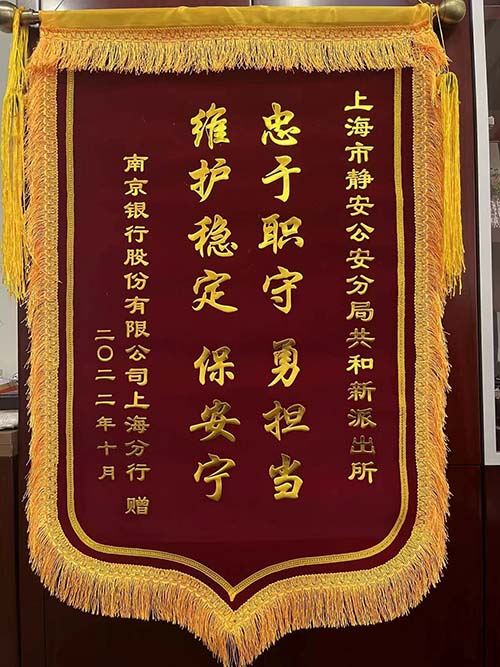 上海市静安公安分局共和新派出所
忠于职守 勇担当
维护稳定 保安宁
南京银行股份有限公司上海分行 赠
二〇二二年十月